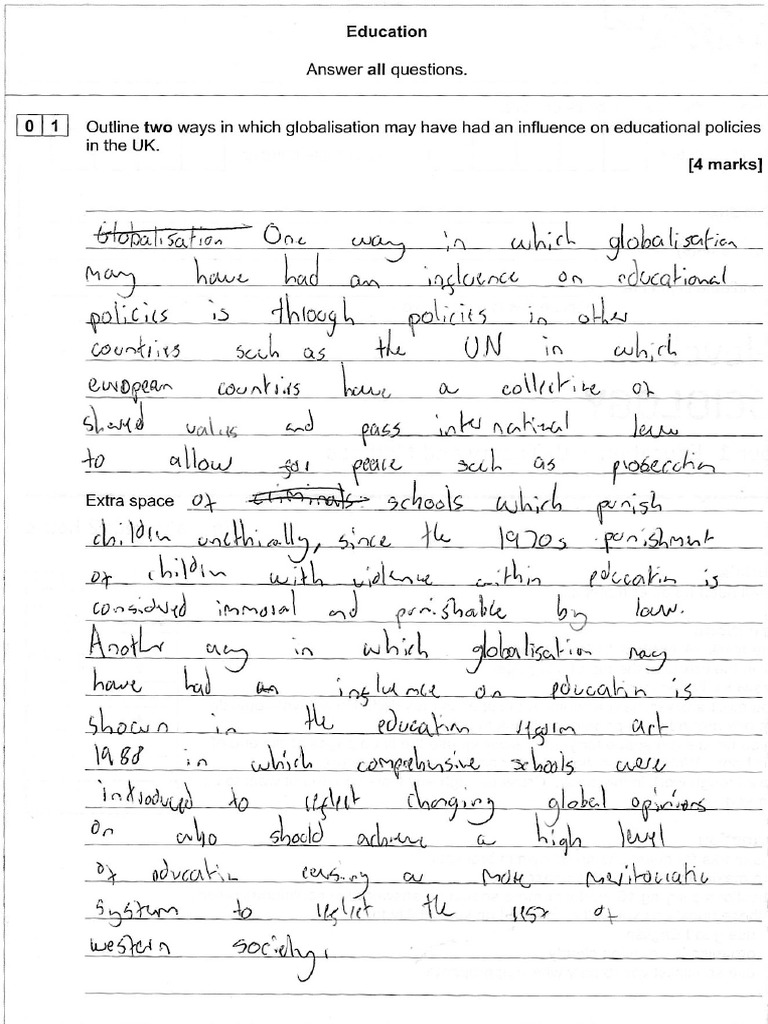 Education
Answer all questions.
0 1 Outline two ways in which globalisation may have had an influence on educational policies
in the UK.
[4 marks]
Globalisation One way in which globalisation
may have had an influence on educational
policies is through policies in other
countries such as the UN in which
european countries have a collective of
shared values and pass international law
to allow for peace such as prosecution
Extra space of criminals schools which punish
children unethically, since the 1970s punishment
of children with violence within education is
considered immoral and punishable by law.
Another way in which globalisation may
have had an influence on education is
shown in the education reform act
1988 in which comprehensive schools were
introduced to reflect changing global opinions
on who should achieve a high level
of education causing a more meritocratic
system to reflect the rest of
western society.